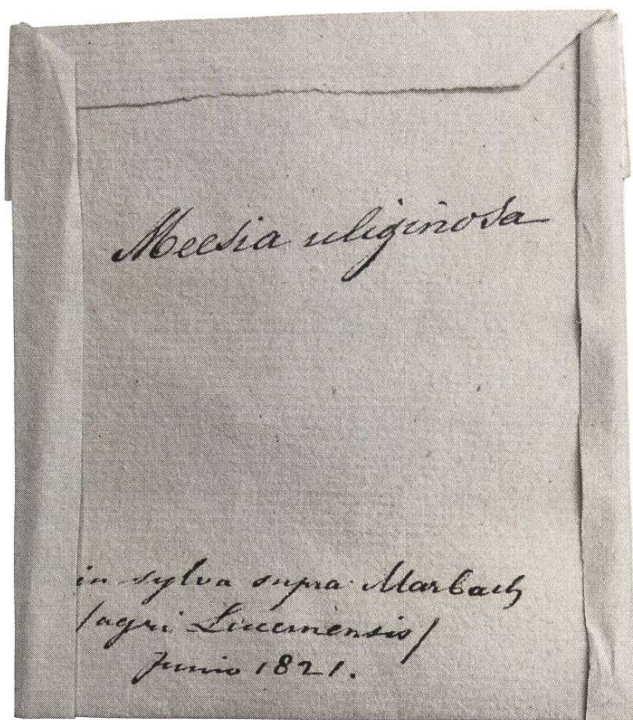 Meesia uliginosa
in sylva supra Marbach
/agri Lucernensis/
Junio 1821.